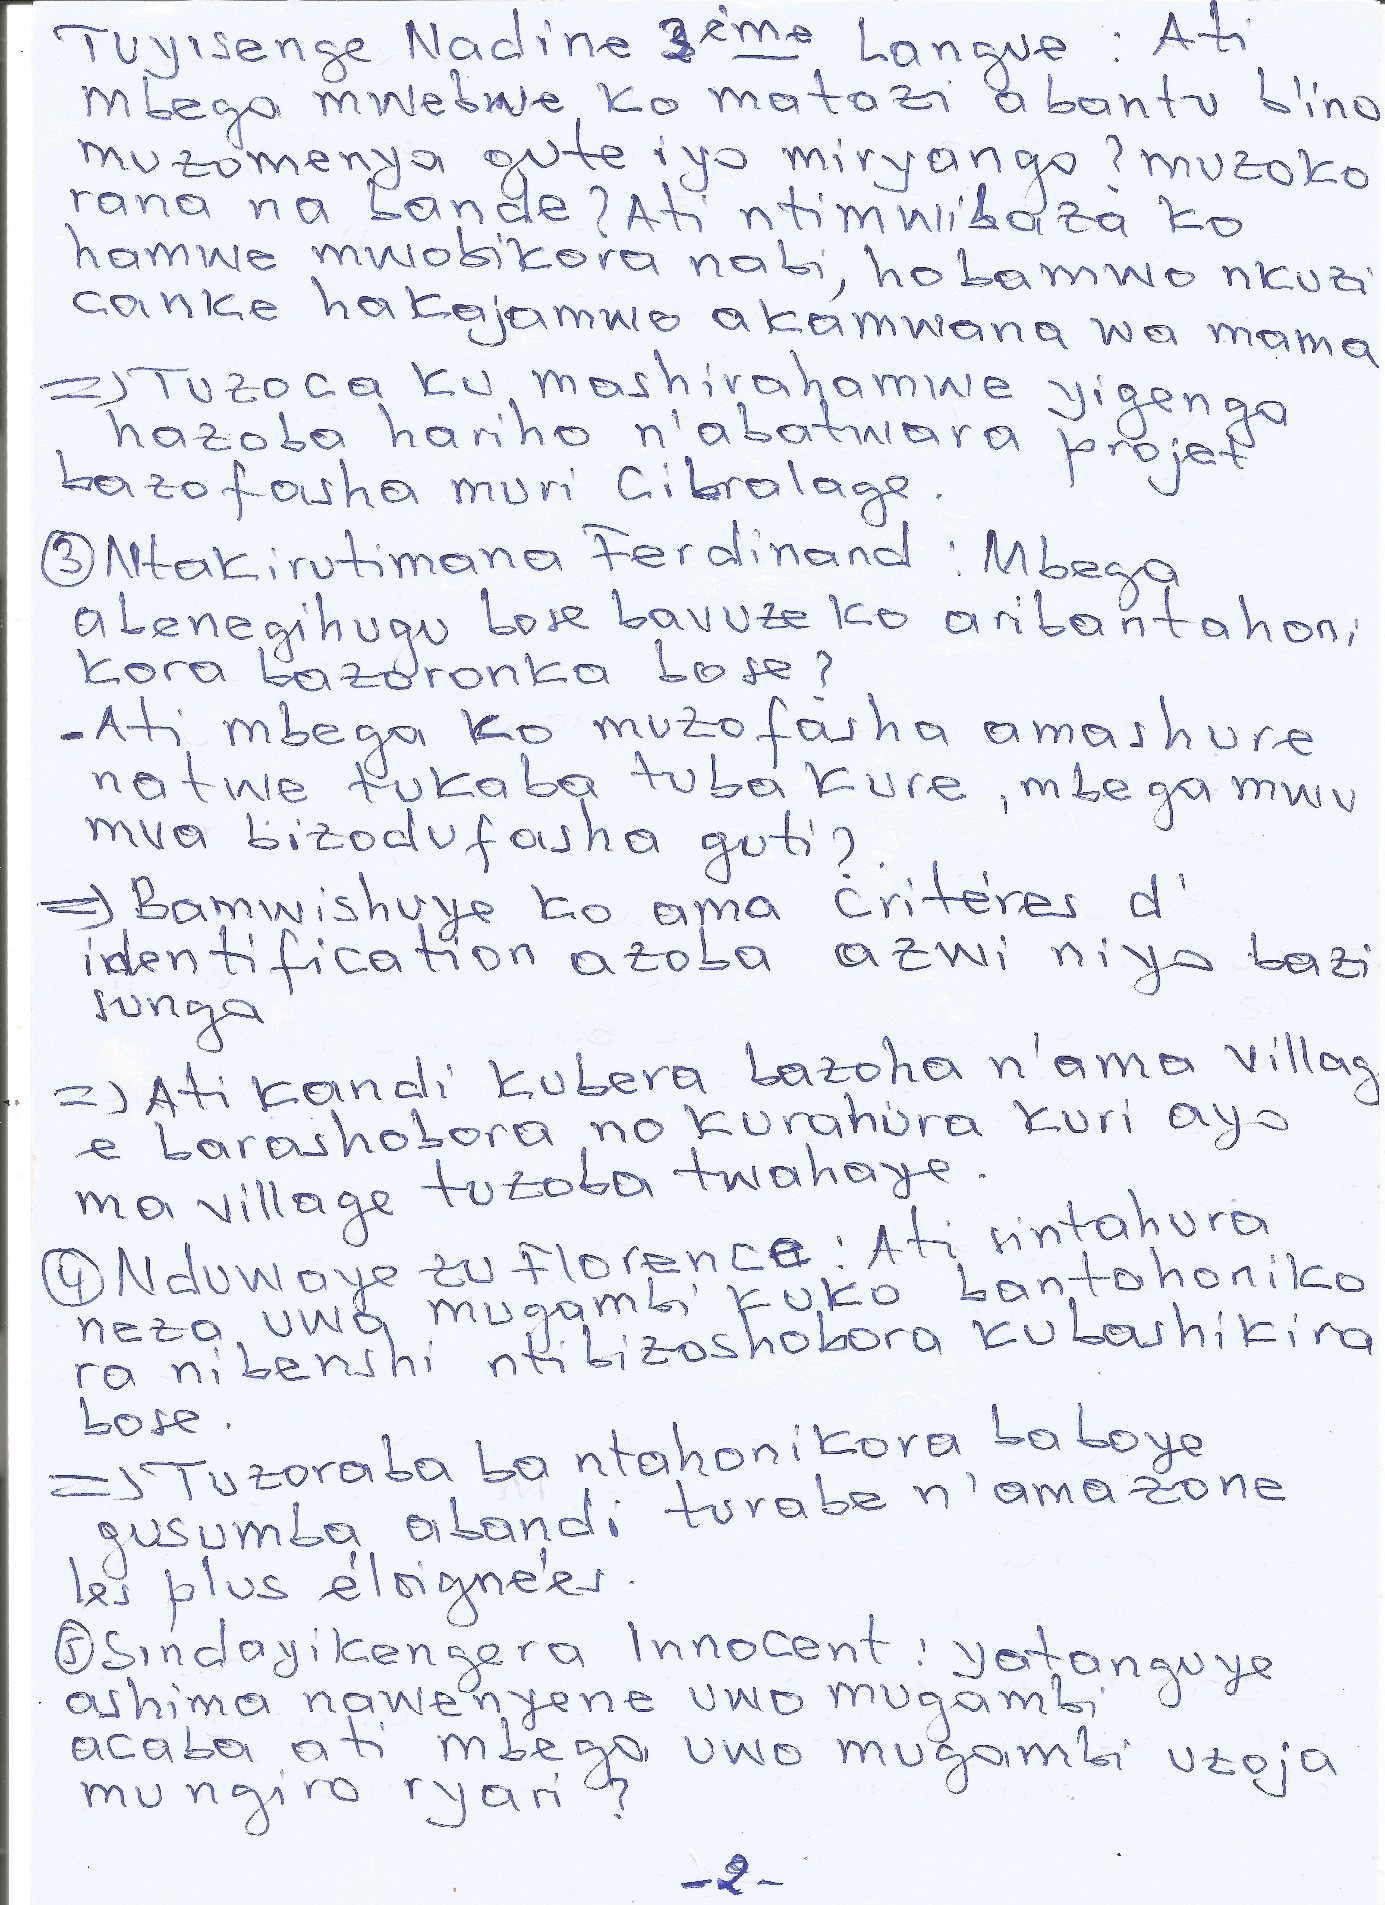 Tuyisenge Nadine 3ème Langue : Ati
mbega mwebwe ko matazi abantu b'ino
muzomenya gute iyo miryango ? muzoko
rana na bande ? Ati ntimwibaza ko
hamwe mwobikora nabi, hobamwo nkuzi
canke hakajamwo akamwana wa mama
=> Tuzoca ku mashirahamwe yigenga
hazoba hariho n'abatwara projet
bazofasha muri Cibralage.
③ Ntakirutimana Ferdinand : Mbega
abenegihugu bose bavuze ko aribantahoni
kora bazoronka bose ?
- Ati mbega ko muzofasha amashure
natwe tukaba tuba kure, mbega mwu
mva bizodufasha guti ?
=> Bamwishuye ko ama critères d'
identification azoba azwi niyo bazi
sunga
=> Ati kandi kubera bazoha n'ama villag
e barashobora no kurahura kuri ayo
ma village tuzoba twahaye.
④ Nduwayezu Florence : Ati sintahura
neza uwo mugambi kuko bantahoniko
ra nibenshi ntibizoshobora kubashikira
bose.
=> Tuzoraba ba ntahonikora baboye
gusumba abandi turabe n'amazone
les plus éloignées.
⑤ Sindayikengera Innocent : yatanguye
ashima nawenyene uwo mugambi
acaba ati mbega uwo mugambi uzoja
mu ngiro ryari ?
-2-